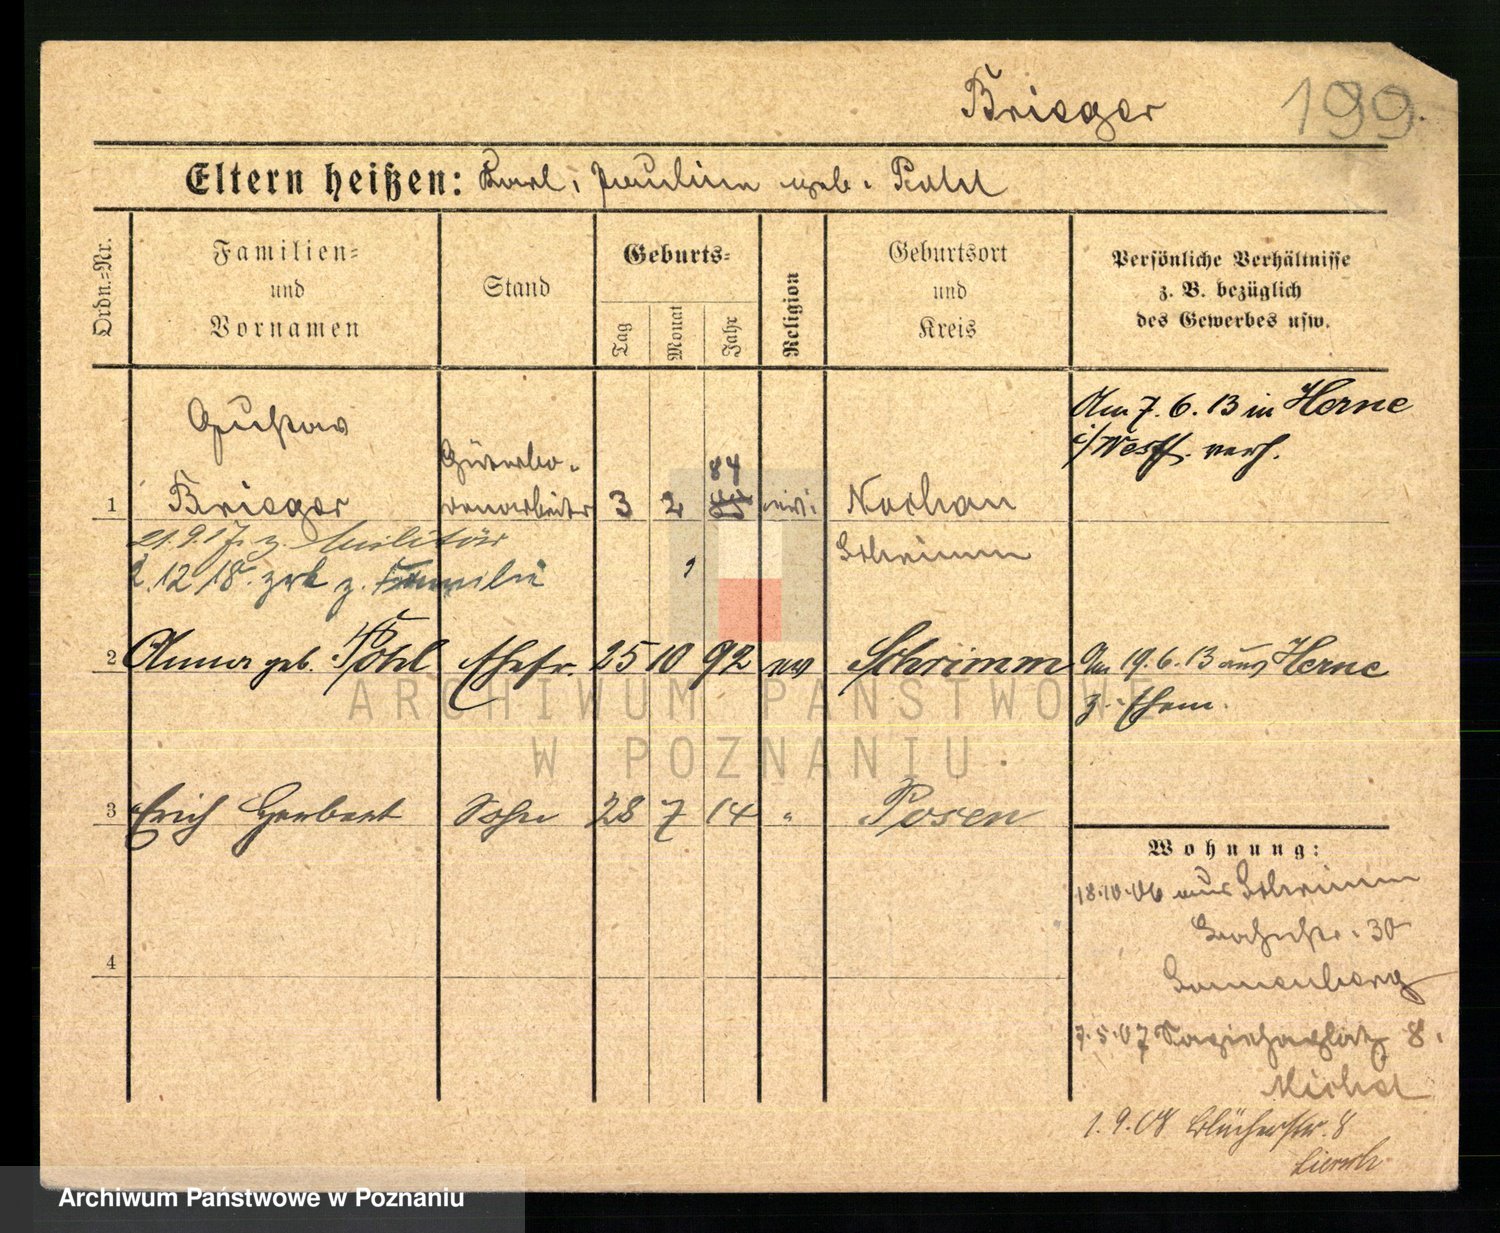 Brieger 199.
Eltern heißen: Karl, Paulina geb. Pohl
Ordn.=Nr.
Familien=
und
Vornamen
Stand
Geburts=
Tag
Monat
Jahr
Religion
Geburtsort
und
Kreis
Persönliche Verhältnisse
z. B. bezüglich
des Gewerbes usw.
Gustav
1 Brieger
Güterbo-
denarbeiter
3 2 84
Nochau
Schrimm
Am 7. 6. 13 in Herne
i/Westf. verh.
21.9.17. z. Militär
2.12 18. zrk z. Familie
2 Anna geb. Pohl Ehefr. 25 10 92 ev Schrimm Am 19.6.13 aus Herne
z. Ehem.
3 Erich Herbert Sohn 28 7 14 " Posen
4
Wohnung:
18.10.06 aus Schrimm
30
Sonnenberg
7.5.07 8.
Michel
1.9.08 Blücherstr. 8
ARCHIWUM PAŃSTWOWE
W POZNANIU
Archiwum Państwowe w Poznaniu